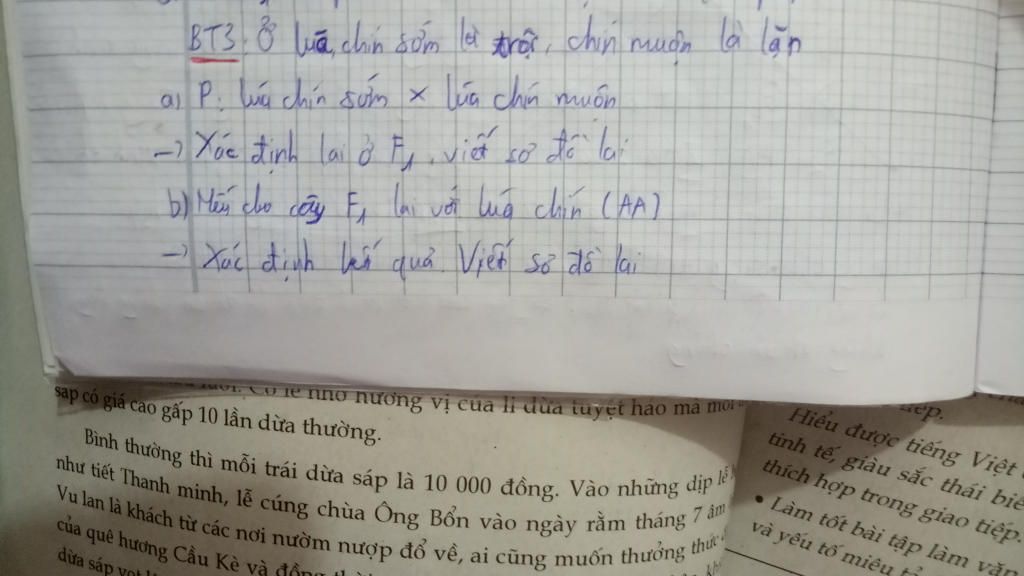 BT3. Ở lúa, chín sớm là trội, chín muộn là lặn
a) P: lúa chín sớm × lúa chín muộn
→ Xác định lai ở F1, viết sơ đồ lai
b) Nếu cho cây F1 lai với lúa chín (AA)
→ Xác định kết quả. Viết sơ đồ lai
nhờ hương vị của li dừa tuyệt hảo mà mỗi
sạp có giá cao gấp 10 lần dừa thường.
Bình thường thì mỗi trái dừa sáp là 10 000 đồng. Vào những dịp lễ
như tiết Thanh minh, lễ cúng chùa Ông Bổn vào ngày rằm tháng 7 âm
Vu lan là khách từ các nơi nườm nượp đổ về, ai cũng muốn thưởng thức
của quê hương Cầu Kè và
dừa sáp
tiếp.
Hiểu được tiếng Việt
tinh tế, giàu sắc thái
thích hợp trong giao tiếp.
• Làm tốt bài tập làm văn
và yếu tố miêu